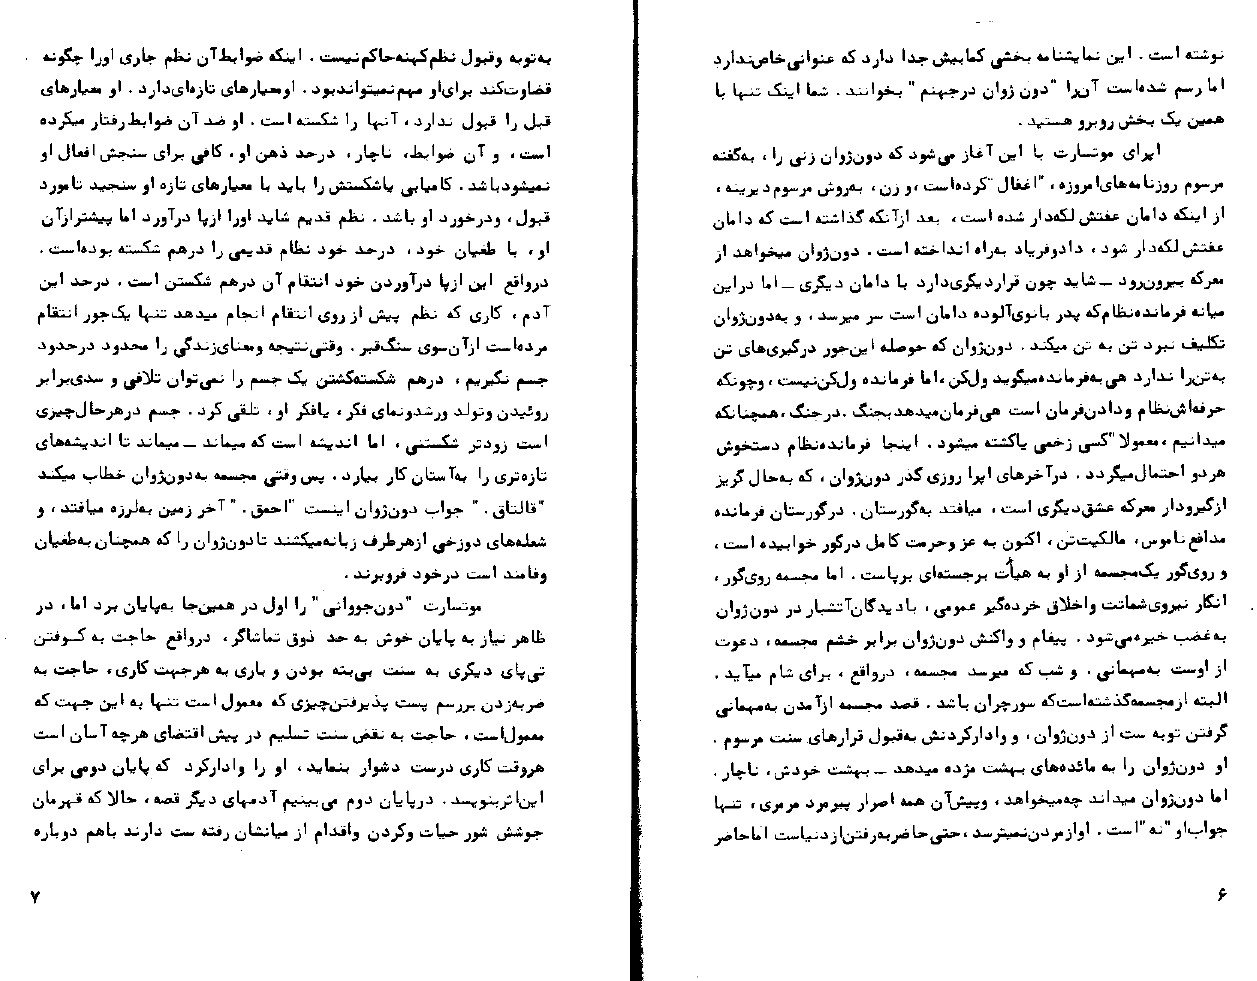 نوشته است . این نمایشنامه بخشی کمابیش جدا دارد که عنوانی خاص ندارد
اما رسم شده است آن را "دون ژوان در جهنم " بخوانند . شما اینک تنها با
همین یک بخش روبرو هستید .
اپرای موتسارت با این آغاز می‌شود که دون‌ژوان زنی را ، به‌گفته
مرسوم روزنامه‌های امروزه ، "اغفال "کرده‌است ،و زن ، به‌روش مرسوم دیرینه ،
از اینکه دامان عفتش لکه‌دار شده است ، بعد ازآنکه گذاشته است که دامان
عفتش لکه‌دار شود ، دادوفریاد به‌راه انداخته است . دون‌ژوان میخواهد از
معرکه بیرون‌رود ـ شاید چون قراردیگری‌دارد با دامان دیگری ـ اما دراین
میانه فرمانده‌نظام‌که پدر بانوی‌آلوده دامان است سر میرسد ، و به‌دون‌ژوان
تکلیف نبرد تن به تن میکند . دون‌ژوان که حوصله این‌جور درگیری‌های تن
به‌تن‌را ندارد هی‌به‌فرمانده‌میگوید ول‌کن ،اما فرمانده ول‌کن‌نیست ، وچونکه
حرفه‌اش‌نظام ودادن‌فرمان است هی‌فرمان‌میدهدبجنگ .درجنگ ،همچنانکه
میدانیم ،معمولا "کسی زخمی یاکشته میشود . اینجا فرمانده‌نظام دستخوش
هردو احتمال‌میگردد . درآخرهای اپرا روزی گذر دون‌ژوان ، که به‌حال گریز
ازگیرودار معرکه عشق‌دیگری است ، میافتد به‌گورستان . درگورستان فرمانده
مدافع‌ناموس، مالکیت‌تن ، اکنون به عز وحرمت کامل درگور خوابیده است ،
و روی‌گور یک‌مجسمه از او به هیأت برجسته‌ای برپاست . اما مجسمه روی‌گور ،
انگار نیروی‌شماتت واخلاق خرده‌گیر عمومی ، بادیدگان‌آتشبار در دون‌ژوان
به‌غضب خیره‌می‌شود . پیغام و واکنش دون‌ژوان برابر خشم مجسمه ، دعوت
از اوست به‌میهمانی . و شب که میرسد مجسمه ، درواقع ، برای شام میآید .
البته ازمجسمه‌گذشته‌است‌که سورچران باشد . قصد مجسمه ازآمدن به‌میهمانی
گرفتن توبه ست از دون‌ژوان ، و وادارکردنش به‌قبول قرارهای سنت مرسوم .
او دون‌ژوان را به مائده‌های بهشت مژده میدهد ـ بهشت خودش ، ناچار .
اما دون‌ژوان میداند چه‌میخواهد ، وپیش‌آن همه اصرار پیرمرد مرمری ، تنها
جواب‌او "نه "است . اوازمردن‌نمیترسد ،حتی‌حاضربه‌رفتن‌ازدنیاست اماحاضر
۶
به‌توبه وقبول نظم‌کهنه‌حاکم‌نیست . اینکه ضوابط‌آن نظم جاری اورا چگونه
قضاوت‌کند برای‌او مهم‌نمیتواندبود . اومعیارهای تازه‌ای‌دارد . او معیارهای
قبل را قبول ندارد ، آنها را شکسته است . او ضد آن ضوابط‌رفتار میکرده
است ، و آن ضوابط، ناچار ، درحد ذهن او ، کافی برای سنجش افعال او
نمیشودباشد . کامیابی یاشکستش را باید با معیارهای تازه او سنجید تامورد
قبول ، ودرخورد او باشد . نظم قدیم شاید اورا ازپا درآورد اما پیشترازآن
او ، با طغیان خود ، درحد خود نظام قدیمی را درهم شکسته بوده‌است .
درواقع این ازپا درآوردن خود انتقام آن درهم شکستن است . درحد این
آدم ، کاری که نظم پیش از روی انتقام انجام میدهد تنها یک‌جور انتقام
مرده‌است ازآن‌سوی سنگ‌قبر . وقتی‌نتیجه ومعنای‌زندگی را محدود درحدود
جسم نگیریم ، درهم شکسته‌گشتن یک جسم را نمی‌توان تلافی و سدی‌برابر
روئیدن وتولد ورشدونمای فکر ، یافکر او ، تلقی کرد . جسم درهرحال‌چیزی
است زودتر شکستنی ، اما اندیشه است که میماند ـ میماند تا اندیشه‌های
تازه‌تری را به‌آستان کار بیارد . پس وقتی مجسمه به‌دون‌ژوان خطاب میکند
"قالتاق . " جواب دون‌ژوان اینست "احمق . " آخر زمین به‌لرزه میافتد ، و
شعله‌های دوزخی ازهرطرف زبانه‌میکشند تادون‌ژوان را که همچنان به‌طغیان
وفامند است درخود فروبرند .
موتسارت "دون‌جووانی " را اول در همین‌جا به‌پایان برد اما ، در
ظاهر نیاز به پایان خوش به حد ذوق تماشاگر ، درواقع حاجت به کوفتن
تی‌پای دیگری به سنت بی‌بته بودن و باری به هرجهت کاری ، حاجت به
ضربه‌زدن بررسم پست پذیرفتن‌چیزی که معمول است تنها به این جهت که
معمول‌است ، حاجت به نقض سنت تسلیم در پیش اقتضای هرچه آسان است
هروقت کاری درست دشوار بنماید ، او را وادارکرد که پایان دومی برای
این‌اثربنویسد . درپایان دوم می‌بینیم آدمهای دیگر قصه ، حالا که قهرمان
جوشش شور حیات وکردن واقدام از میانشان رفته ست دارند باهم دوباره
۷